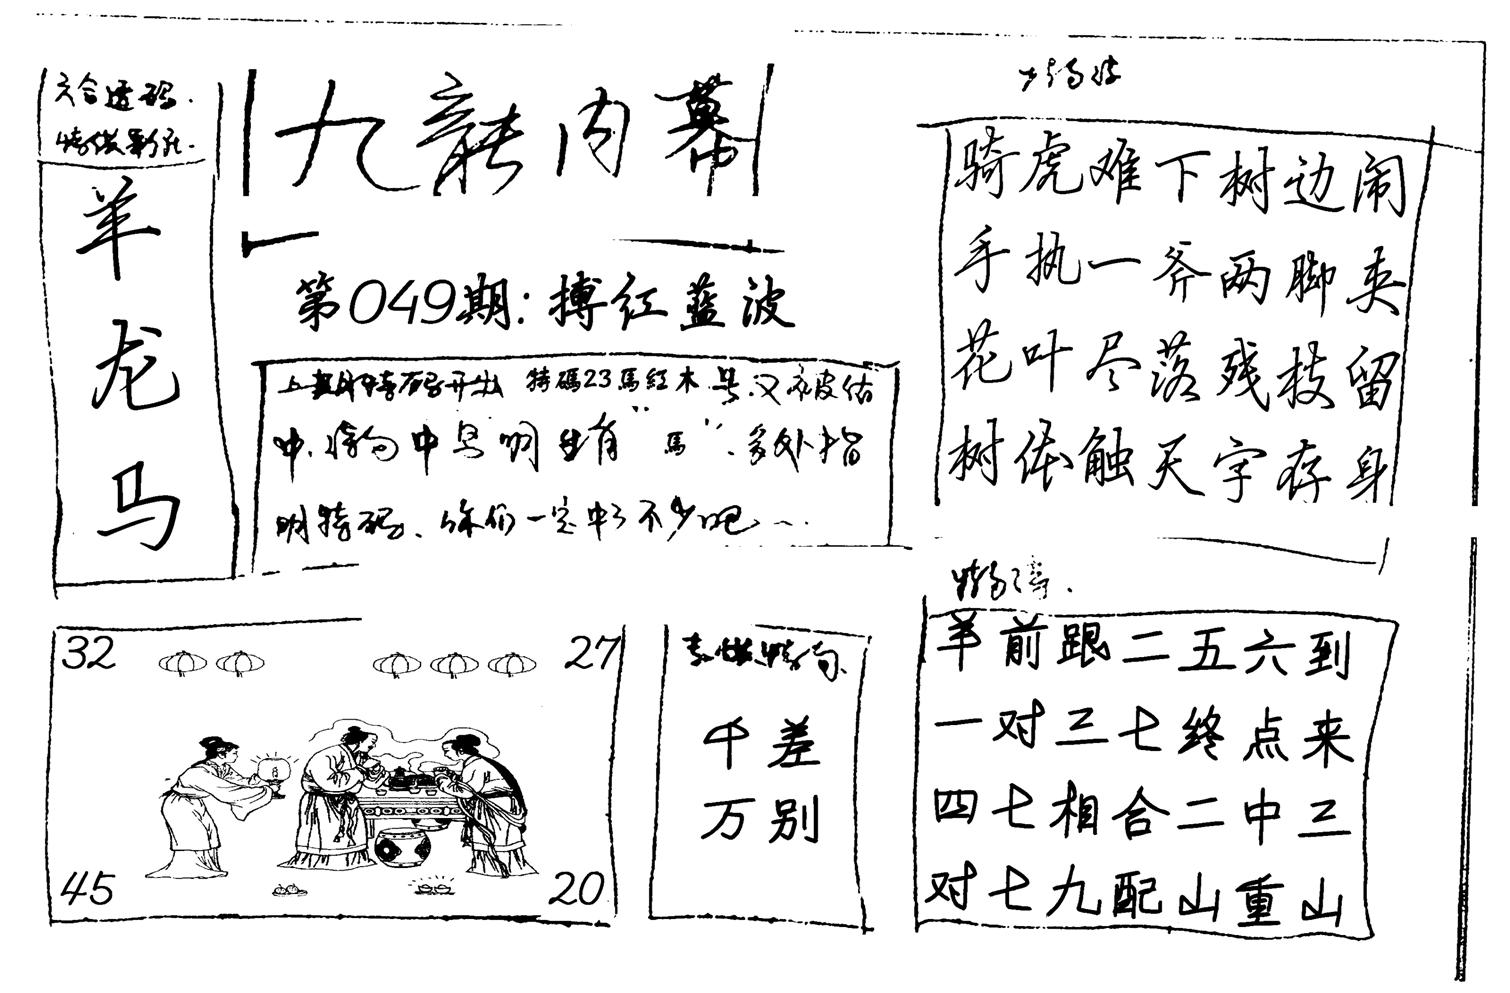 六合透码.
羊
龙
马
九龍内幕
第049期:搏红蓝波
上期特码开出 特碼23馬紅木号.又被估
中.特句中号明生肖"馬".多外指
明特码、你们一定中了不少吧...
骑虎难下树边闹
手执一斧两脚夹
花叶尽落残枝留
树体触天字存身
32
27
45
20
千差
万别
羊前跟二五六到
一对三七终点来
四七相合二中三
对七九配山重山